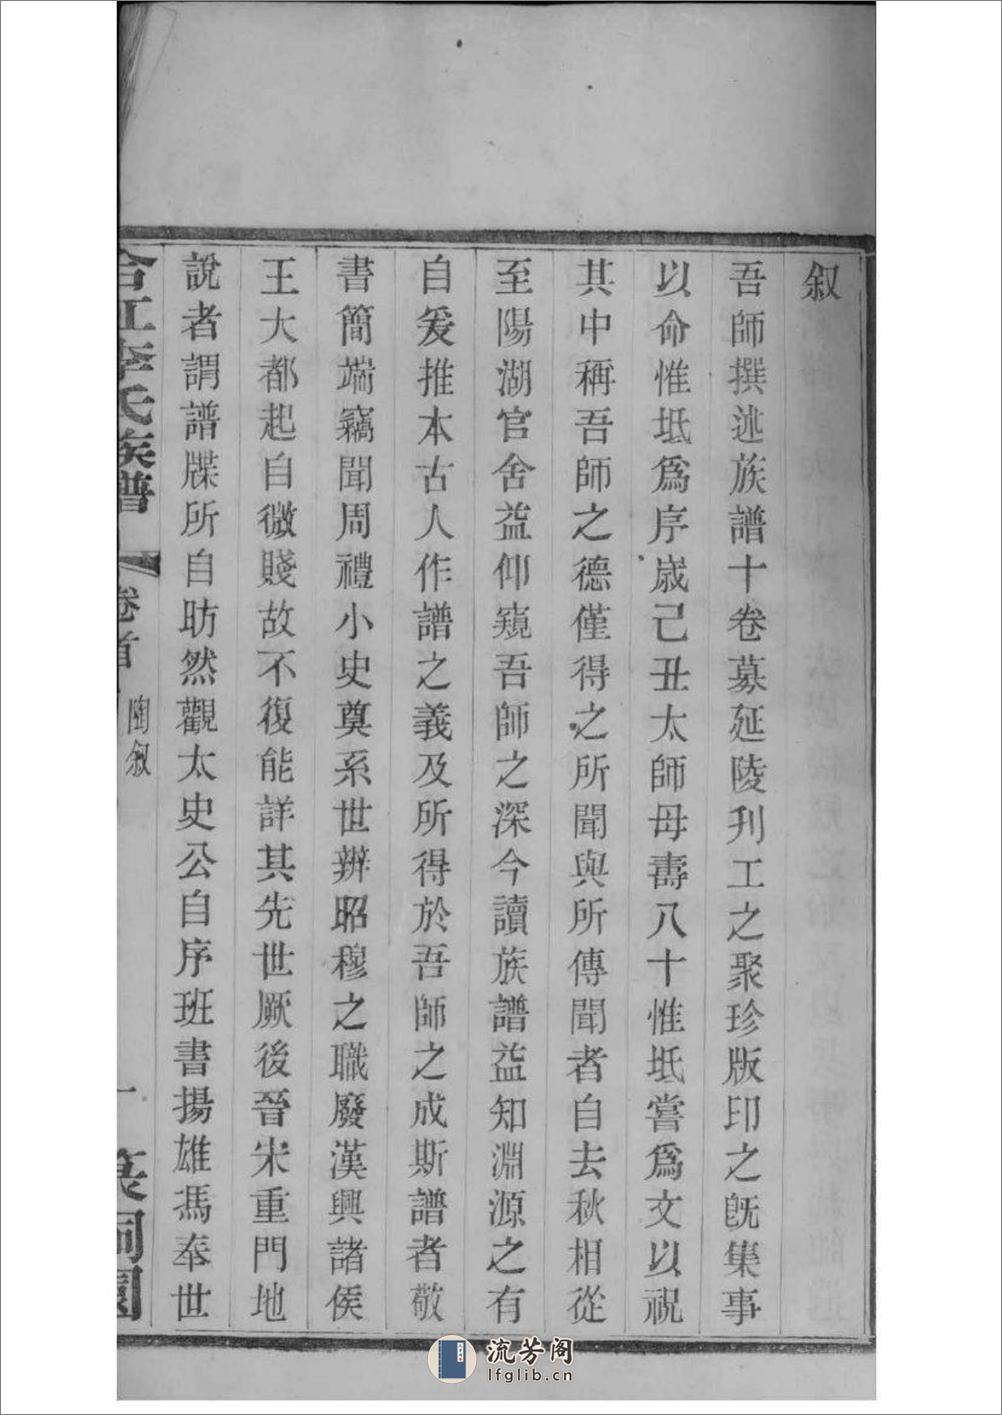 叙
吾師撰述族譜十卷募延陵刋工之聚珍版印之旣集事
以命惟坻爲序歲己丑太師母壽八十惟坻嘗爲文以祝
其中稱吾師之德僅得之所聞與所傳聞者自去秋相從
至陽湖官舍益仰窺吾師之深今讀族譜益知淵源之有
自爰推本古人作譜之義及所得於吾師之成斯譜者敬
書簡端竊聞周禮小史奠系世辨昭穆之職廢漢興諸侯
王大都起自微賤故不復能詳其先世厥後晉宋重門地
說者謂譜牒所自昉然觀太史公自序班書揚雄馮奉世
合江李氏族譜
卷首
陶叙
一
流芳阁
lfglib.cn